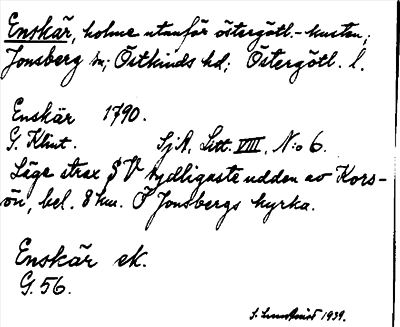 Enskär, holme utanför östergötl.-kusten;
Jonsberg sn; Östkinds hd; Östergötl. l.
Enskär 1790.
G. Klint. SjA, Litt. VIII, N:o 6.
Läge strax S V sydligaste udden av Kors-
ön, bel. 8 km. Ö Jonsbergs kyrka.
Enskär ek.
G. 56.
1939.